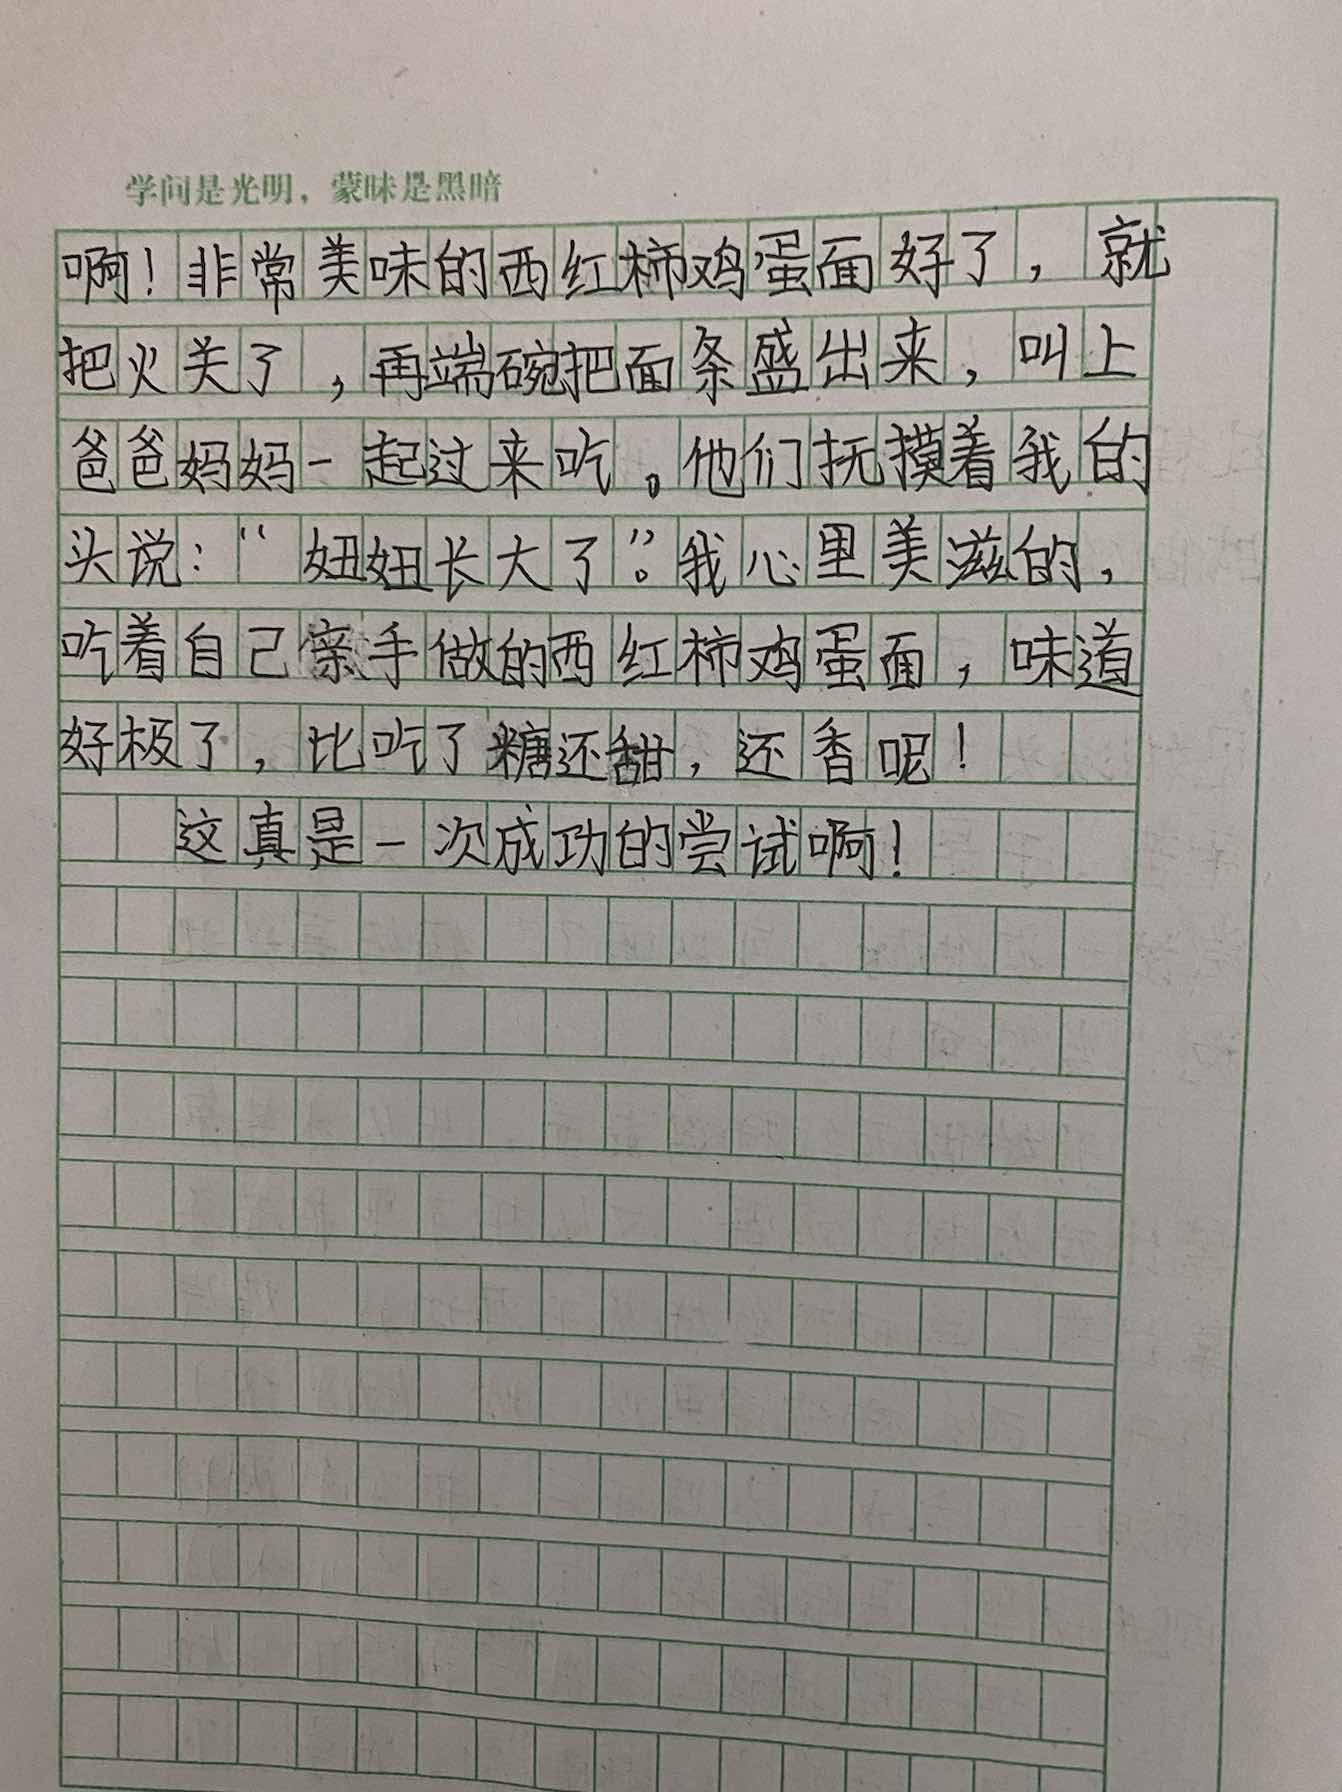 学问是光明，蒙昧是黑暗
啊！非常美味的西红柿鸡蛋面好了，就
把火关了，再端碗把面条盛出来，叫上
爸爸妈妈一起过来吃。他们抚摸着我的
头说：“妞妞长大了”。我心里美滋的，
吃着自己亲手做的西红柿鸡蛋面，味道
好极了，比吃了糖还甜，还香呢！
这真是一次成功的尝试啊！